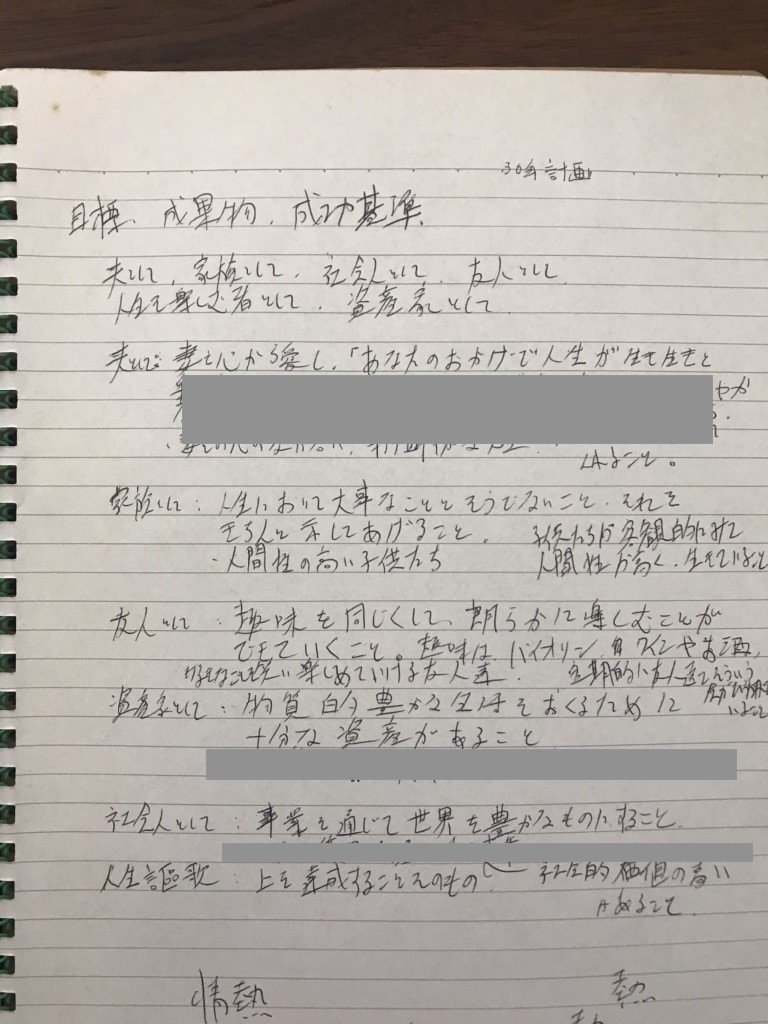 30年計画
目標、成果物、成功基準
夫として、家族として、社会人として、友人として、
人生を楽しむ者として、資産家として
夫として：妻を心から愛し、「あなたのおかげで人生が生き生きと
やか
こと。
家族として：人生において大事なことそうでないこと、それを
きちんと示してあげること。 子供たちが客観的にみて
・人間性の高い子供たち 人間性が高く、生きていること
友人として：趣味を同じくして、朗らかに楽しむことが
できていくこと。趣味は、バイオリン、ワインやお酒、
楽しめていける友人達。 定期的に友人達とそういう
資産家として：物質的今豊かな生活をおくるために
十分な資産があること
社会人として：事業を通じて世界を豊かなものにすること
人生謳歌：上を達成することそのもの 社会的価値の高い
であること
情熱 熱